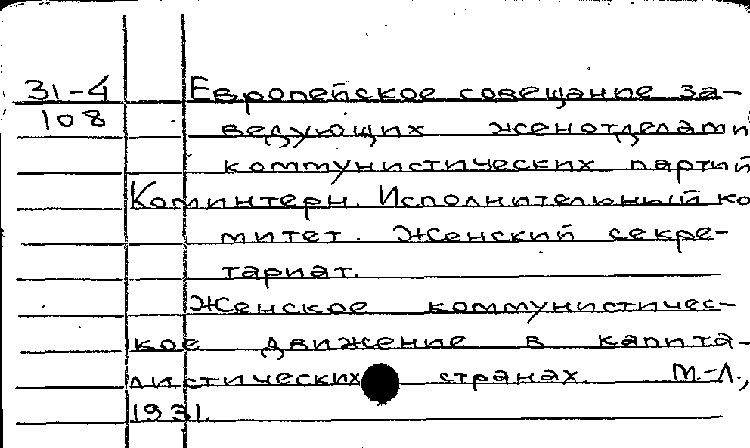 31-4 Европейское совещание за-
108 ведующих женотделами
коммунистических партий
Коминтерн. Исполнительный ко
митет. Женский секре-
тариат.
Женское коммунистичес-
кое движение в капита-
листических странах. М.-Л.,
1931.